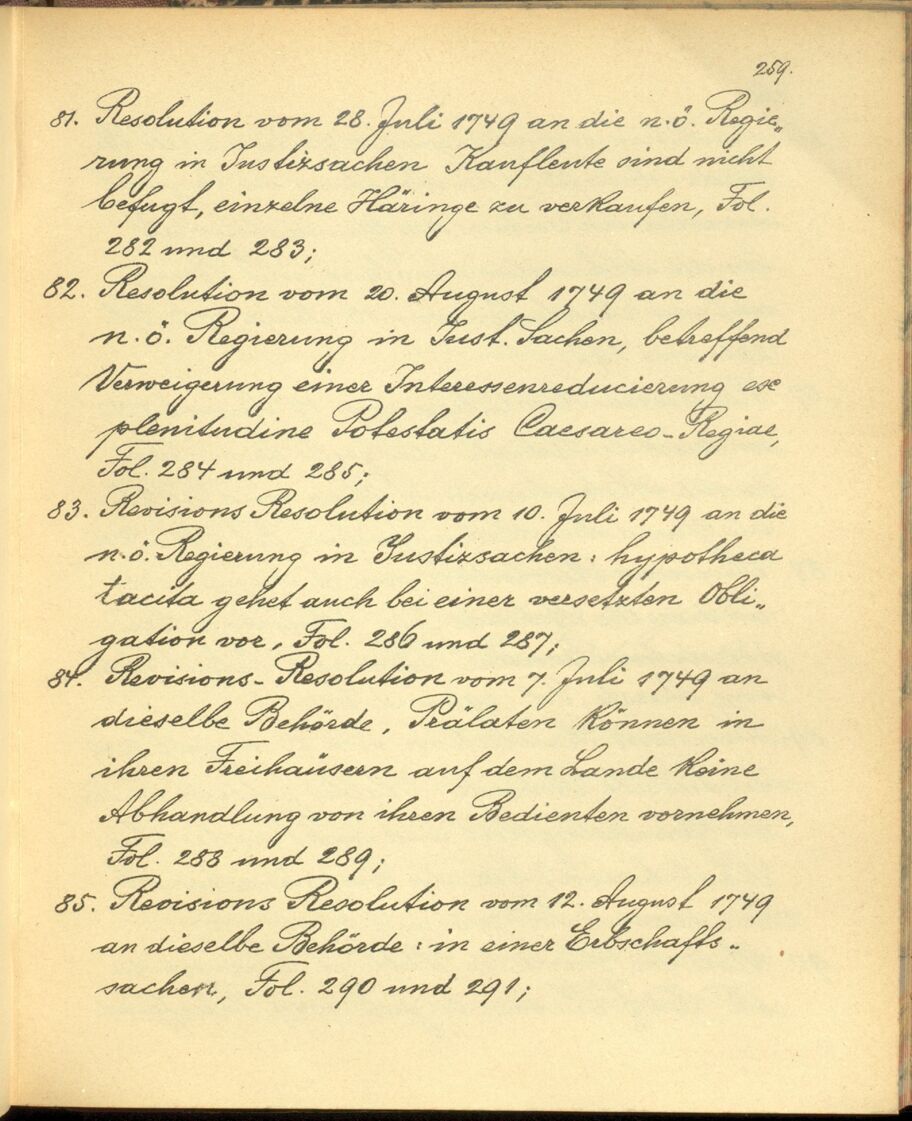 259.
81. Resolution vom 28. Juli 1749 an die n.ö. Regie„
rung in Justizsachen Kaufleute sind nicht
befugt, einzelne Häringe zu verkaufen, Fol.
282 und 283;
82. Resolution vom 20. August 1749 an die
n.ö. Regierung in Just. Sachen, betreffend
Verweigerung einer Interessenreducierung ex
plenitudine Potestatis Caesareo-Regiae,
Fol. 284 und 285;
83. Revisions Resolution vom 10. Juli 1749 an die
n.ö. Regierung in Justizsachen: hypotheca
tacita gehet auch bei einer versetzten Obli„
gation vor, Fol. 286 und 287;
84. Revisions-Resolution vom 7. Juli 1749 an
dieselbe Behörde, Prälaten können in
ihren Freihäusern auf dem Lande keine
Abhandlung von ihren Bedienten vornehmen,
Fol. 288 und 289;
85. Revisions Resolution vom 12. August 1749
an dieselbe Behörde: in einer Erbschafts„
sachen, Fol. 290 und 291;